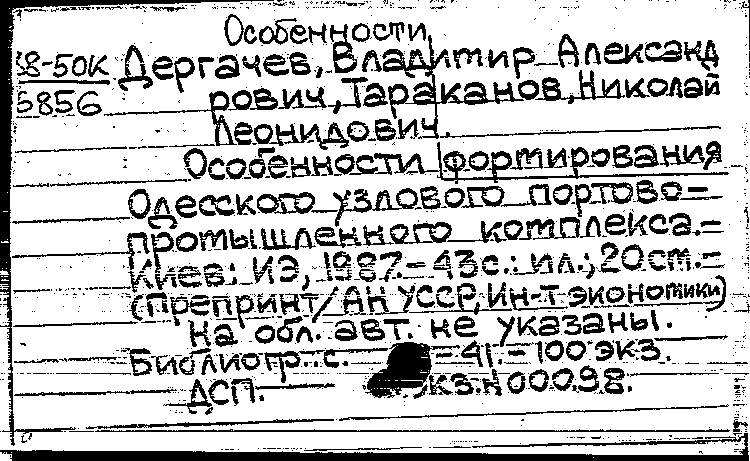 Особенности
38-50К Дергачев, Владимир Александ
5856 рович, Тараканов, Николай
Леонидович.
Особенности формирования
Одесского узлового портово-
промышленного комплекса.-
Киев: ИЭ, 1987.- 43с.: ил.; 20 ст.-
(Препринт/АН УССР, Ин-т экономики)
На обл. авт. не указаны.
Библиогр.: с. -41.- 100 экз.
ДСП. экз.N 00098.